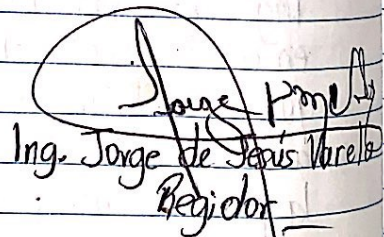 Jorge
Ing. Jorge de Jesús Varela
Regidor